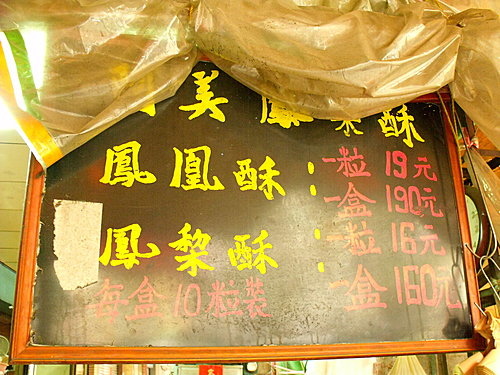 美鳳梨酥
鳳凰酥：一粒 19元
一盒 190元
鳳梨酥：一粒 16元
一盒 160元
每盒10粒裝